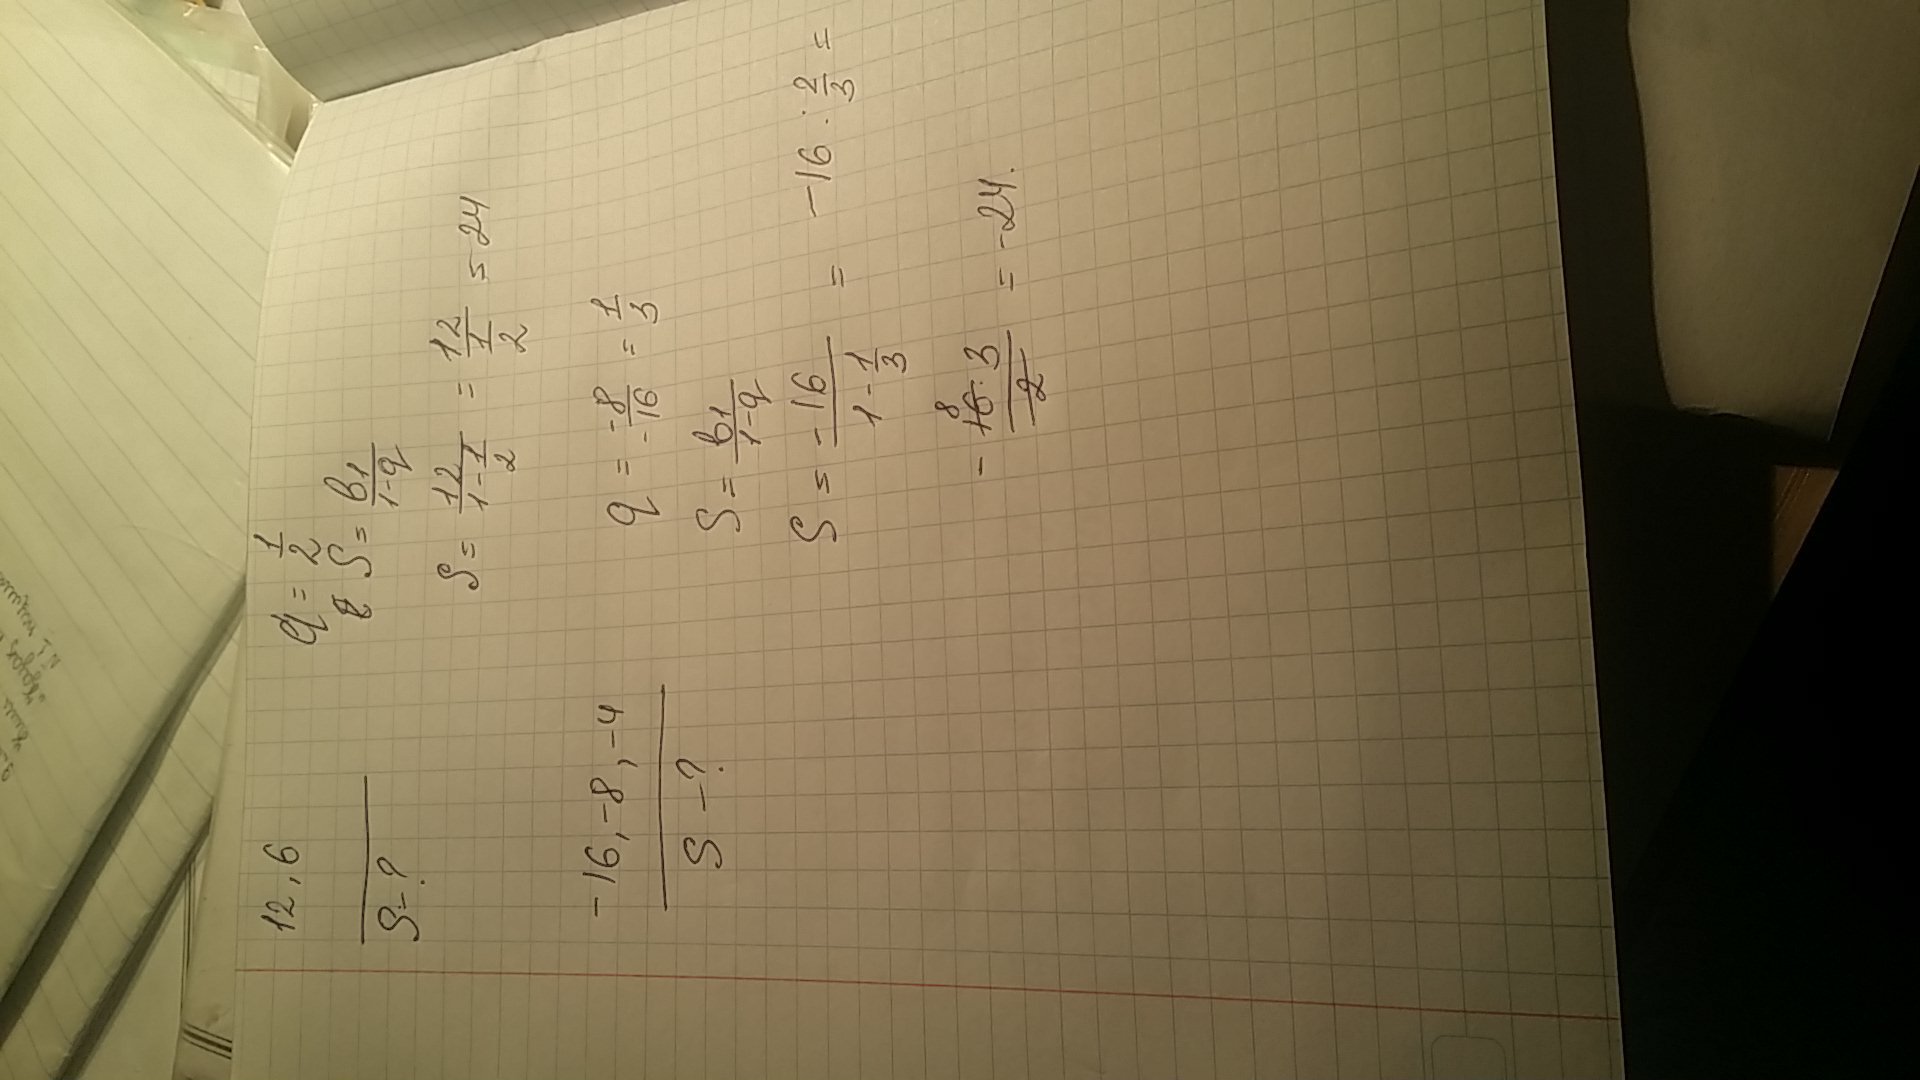 12, 6
S-?
q = 1/2
S = b₁/(1-q)
S = 12/(1-1/2) = 12/(1/2) = 24
-16, -8, -4
S-?
q = -8/-16 = 1/3
S = b₁/(1-q)
S = -16/(1-1/3) = -16 : 2/3 =
-16·3/2 = -24.
8